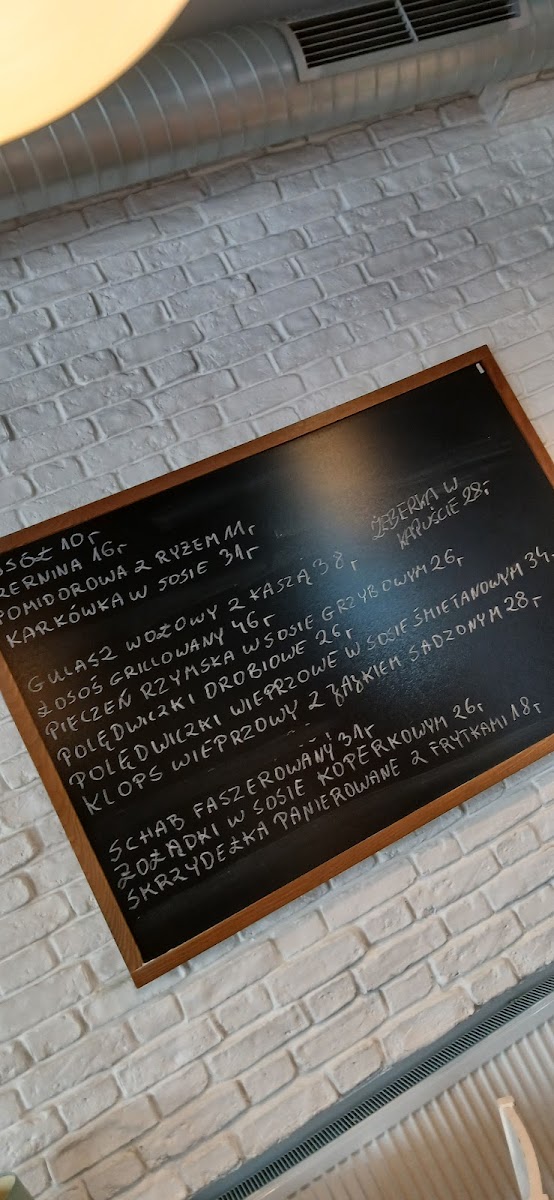 10,-
16,-
POMIDOROWA Z RYŻEM 11,-
KARKÓWKA W SOSIE 31,-
ŻEBERKA W
KAPUŚCIE 28,-
GULASZ WOŁOWY Z KASZĄ 38,-
ŁOSOŚ GRILLOWANY 46,-
PIECZEŃ RZYMSKA W SOSIE GRZYBOWYM 26,-
POLĘDWICZKI DROBIOWE 26,-
POLĘDWICZKI WIEPRZOWE W SOSIE ŚMIETANOWYM 34,-
KLOPS WIEPRZOWY Z JAJKIEM SADZONYM 28,-
SCHAB FASZEROWANY 31,-
ŻOŁĄDKI W SOSIE KOPERKOWYM 26,-
SKRZYDEŁKA PANIEROWANE Z FRYTKAMI 18,-